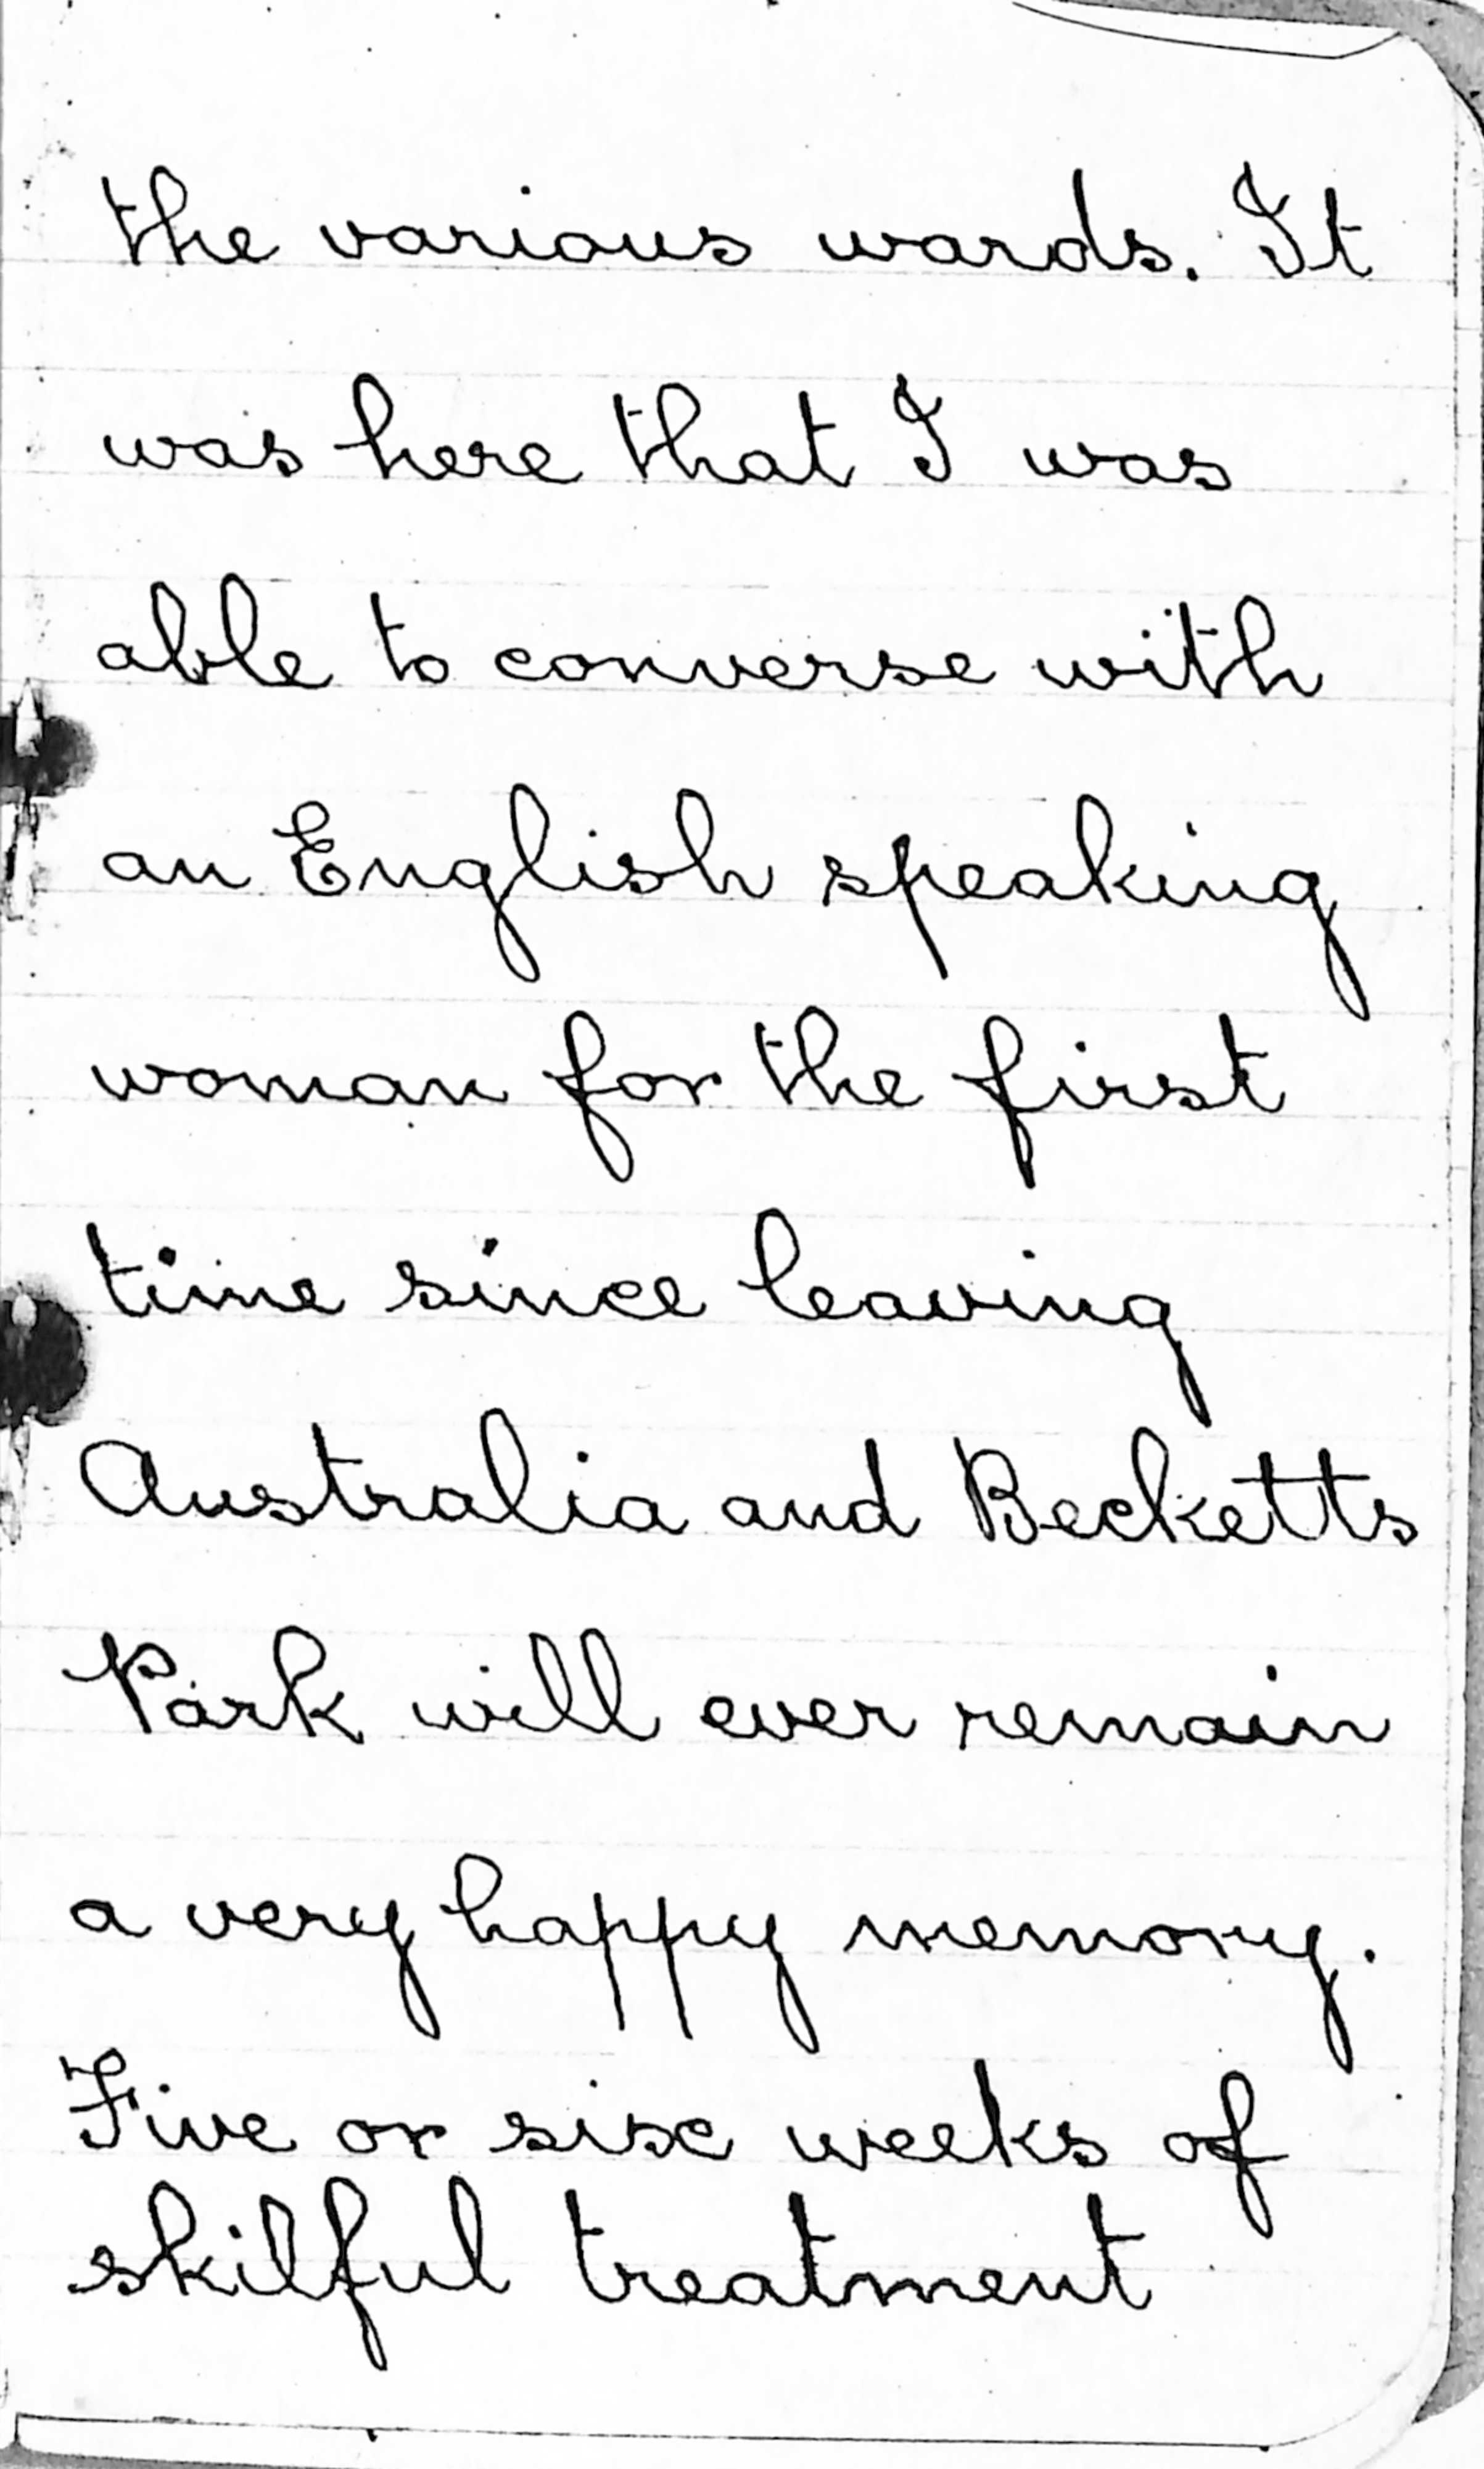 the various wards. It
was here that I was
able to converse with
an English speaking
woman for the first
time since leaving
Australia and Becketts
Park will ever remain
a very happy memory.
Five or six weeks of
skilful treatment